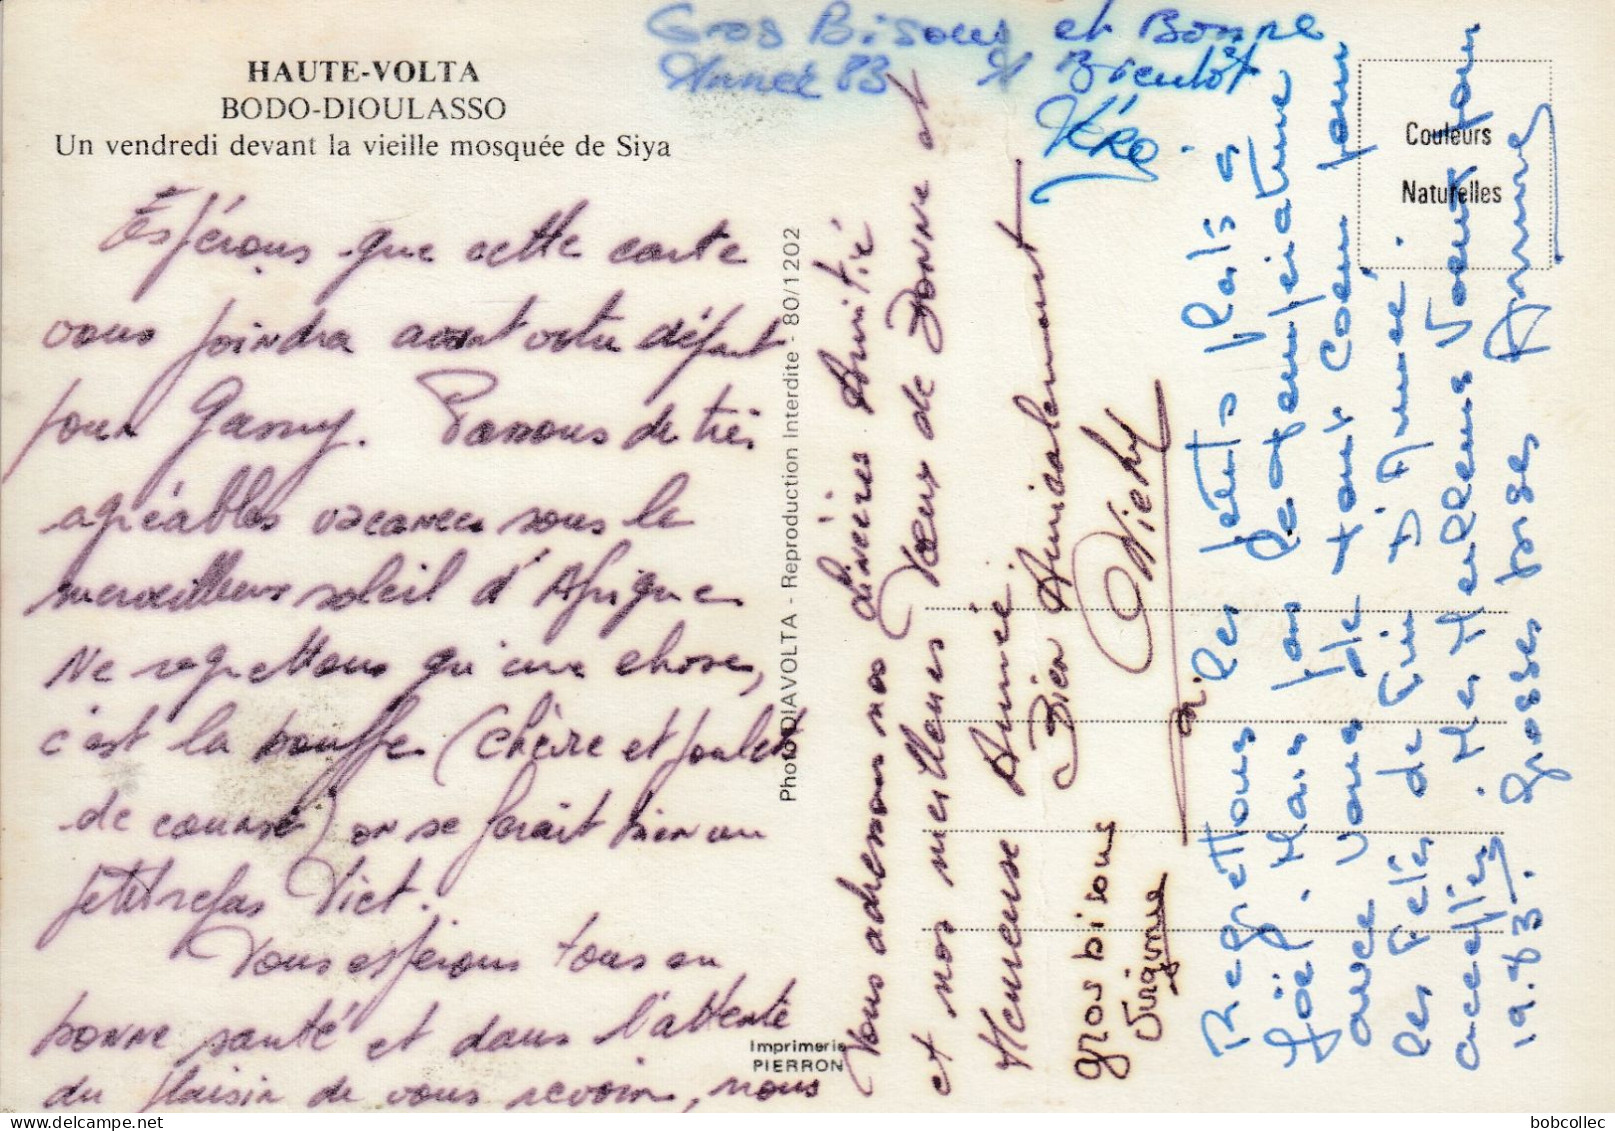 HAUTE-VOLTA
BODO-DIOULASSO
Un vendredi devant la vieille mosquée de Siya
Espérons que cette carte
vous joindra avant votre départ
pour Gasny. Passons de très
agréables vacances sous le
merveilleux soleil d'Afrique
Ne regrettons qu'une chose,
c'est la bouffe (chèvre et poulet
de course) on se ferait bien un
petit repas Viet.
Vous espérons tous en
bonne santé et dans l'attente
du plaisir de vous revoir, nous
Photo DIAVOLTA - Reproduction Interdite - 80/1202
Imprimerie
PIERRON
Vous adressons nos sincères Amitié
et nos meilleures Voeux de Bonne et
Heureuse Année
Bien Amicalement
gros bisous
Virginie
Gros Bisous et Bonne
Année 83 A Bientôt
Véro.
Couleurs
Naturelles
Regrettons les petits plats à
Joël. Mais pas la température
avec vous de tout Coeur pour
les Fetes de Fin d'Année.
acceptez. Mes Meilleurs Voeux pour
19.83. Grosses bises
bobcollec